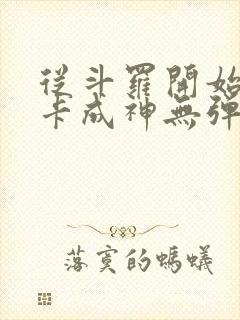 從斗羅開始
卡成神無彈
落寞的螞蟻